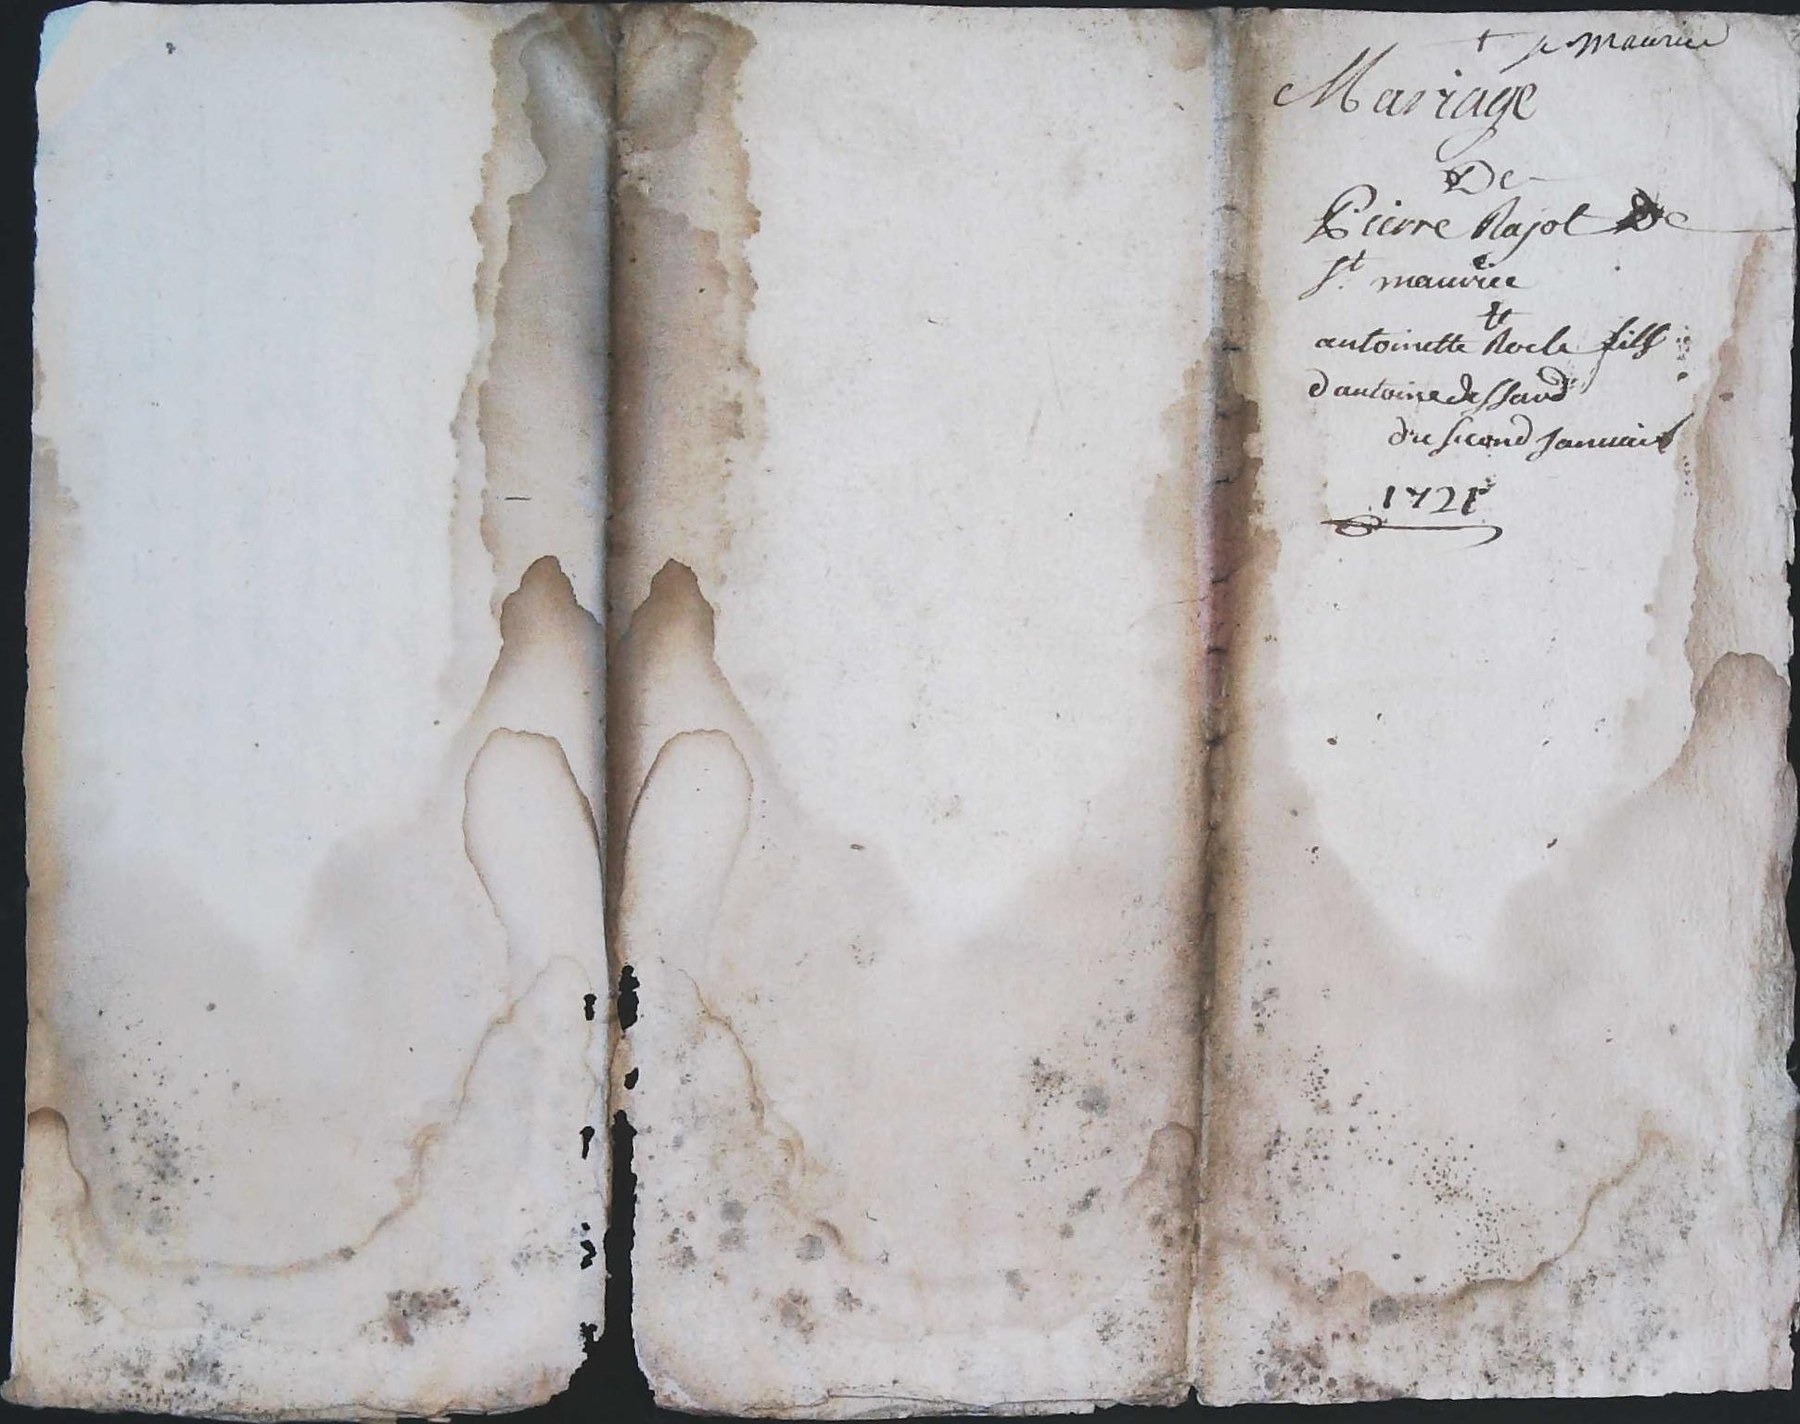 + st maurice
Mariage
De
Pierre Rajot De
St. maurice
&
antoinette Rocle fille
d'antoine
du second Januaie
1721